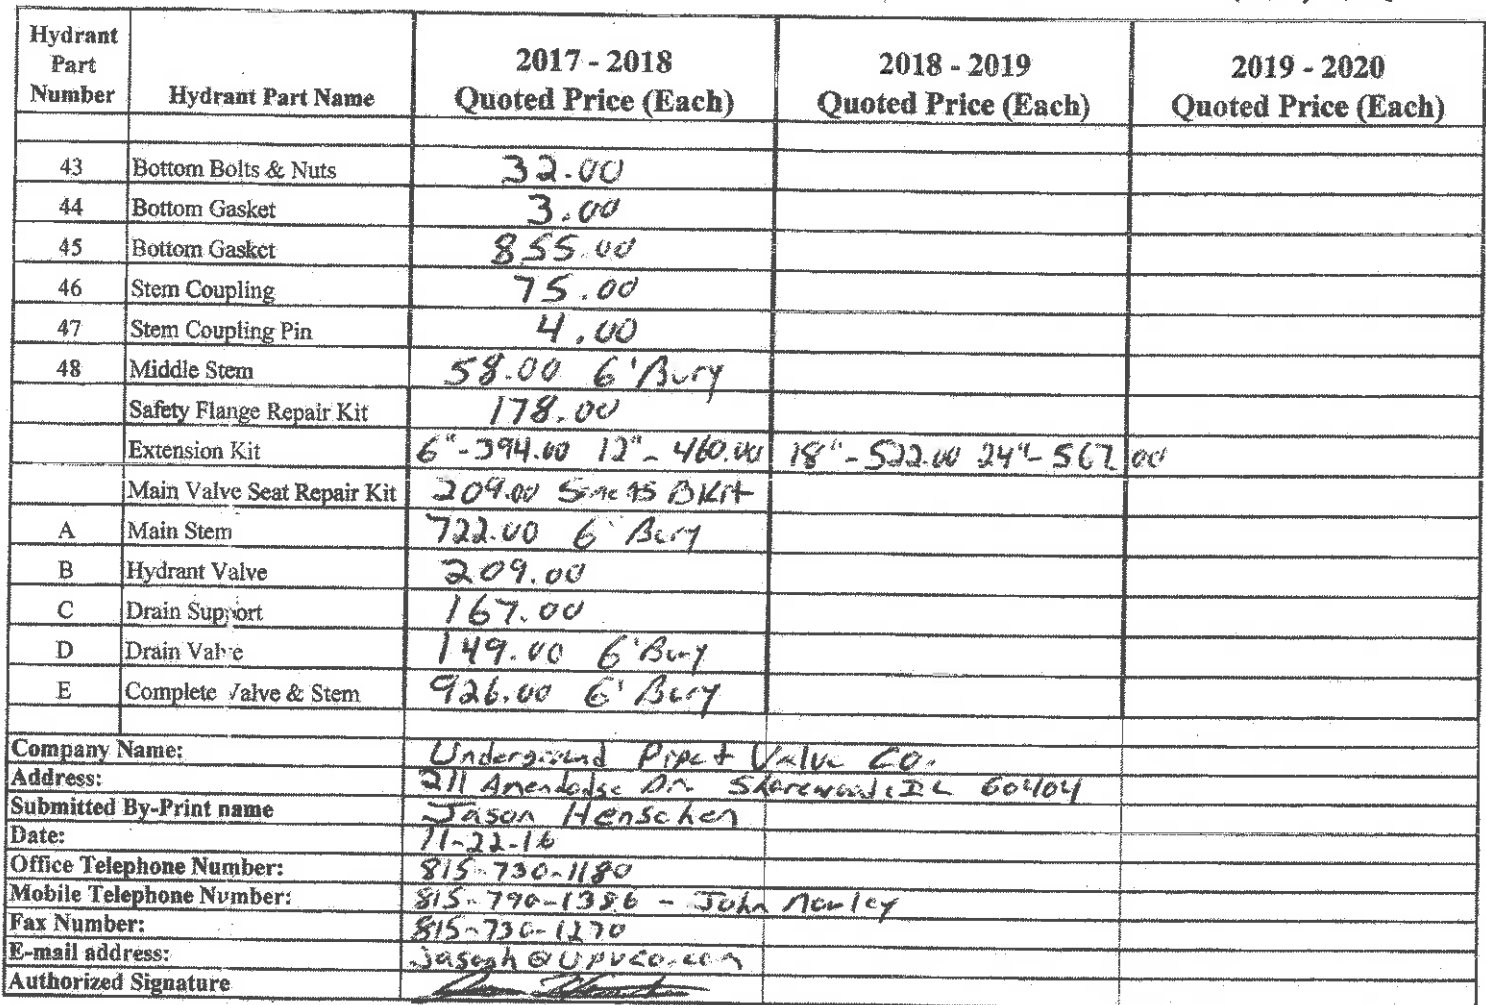 Hydrant Part Number Hydrant Part Name 2017 - 2018 Quoted Price (Each) 2018 - 2019 Quoted Price (Each) 2019 - 2020 Quoted Price (Each)
43 Bottom Bolts & Nuts 32.00
44 Bottom Gasket 3.00
45 Bottom Gasket 855.00
46 Stem Coupling 75.00
47 Stem Coupling Pin 4.00
48 Middle Stem 58.00 6' Bury
Safety Flange Repair Kit 178.00
Extension Kit 6"-394.00 12"-460.00 18"-522.00 24"-567.00
Main Valve Seat Repair Kit 209.00 Same as B Kit
A Main Stem 722.00 6' Bury
B Hydrant Valve 209.00
C Drain Support 167.00
D Drain Valve 149.00 6' Bury
E Complete Valve & Stem 926.00 6' Bury
Company Name: Underground Pipe + Valve Co.
Address: 211 Amendodge Dr. Shorewood, IL 60404
Submitted By-Print name Jason Henschen
Date: 11-22-16
Office Telephone Number: 815-730-1180
Mobile Telephone Number: 815-790-1386 - John
Fax Number: 815-730-1270
E-mail address: jasonh@upvco.com
Authorized Signature